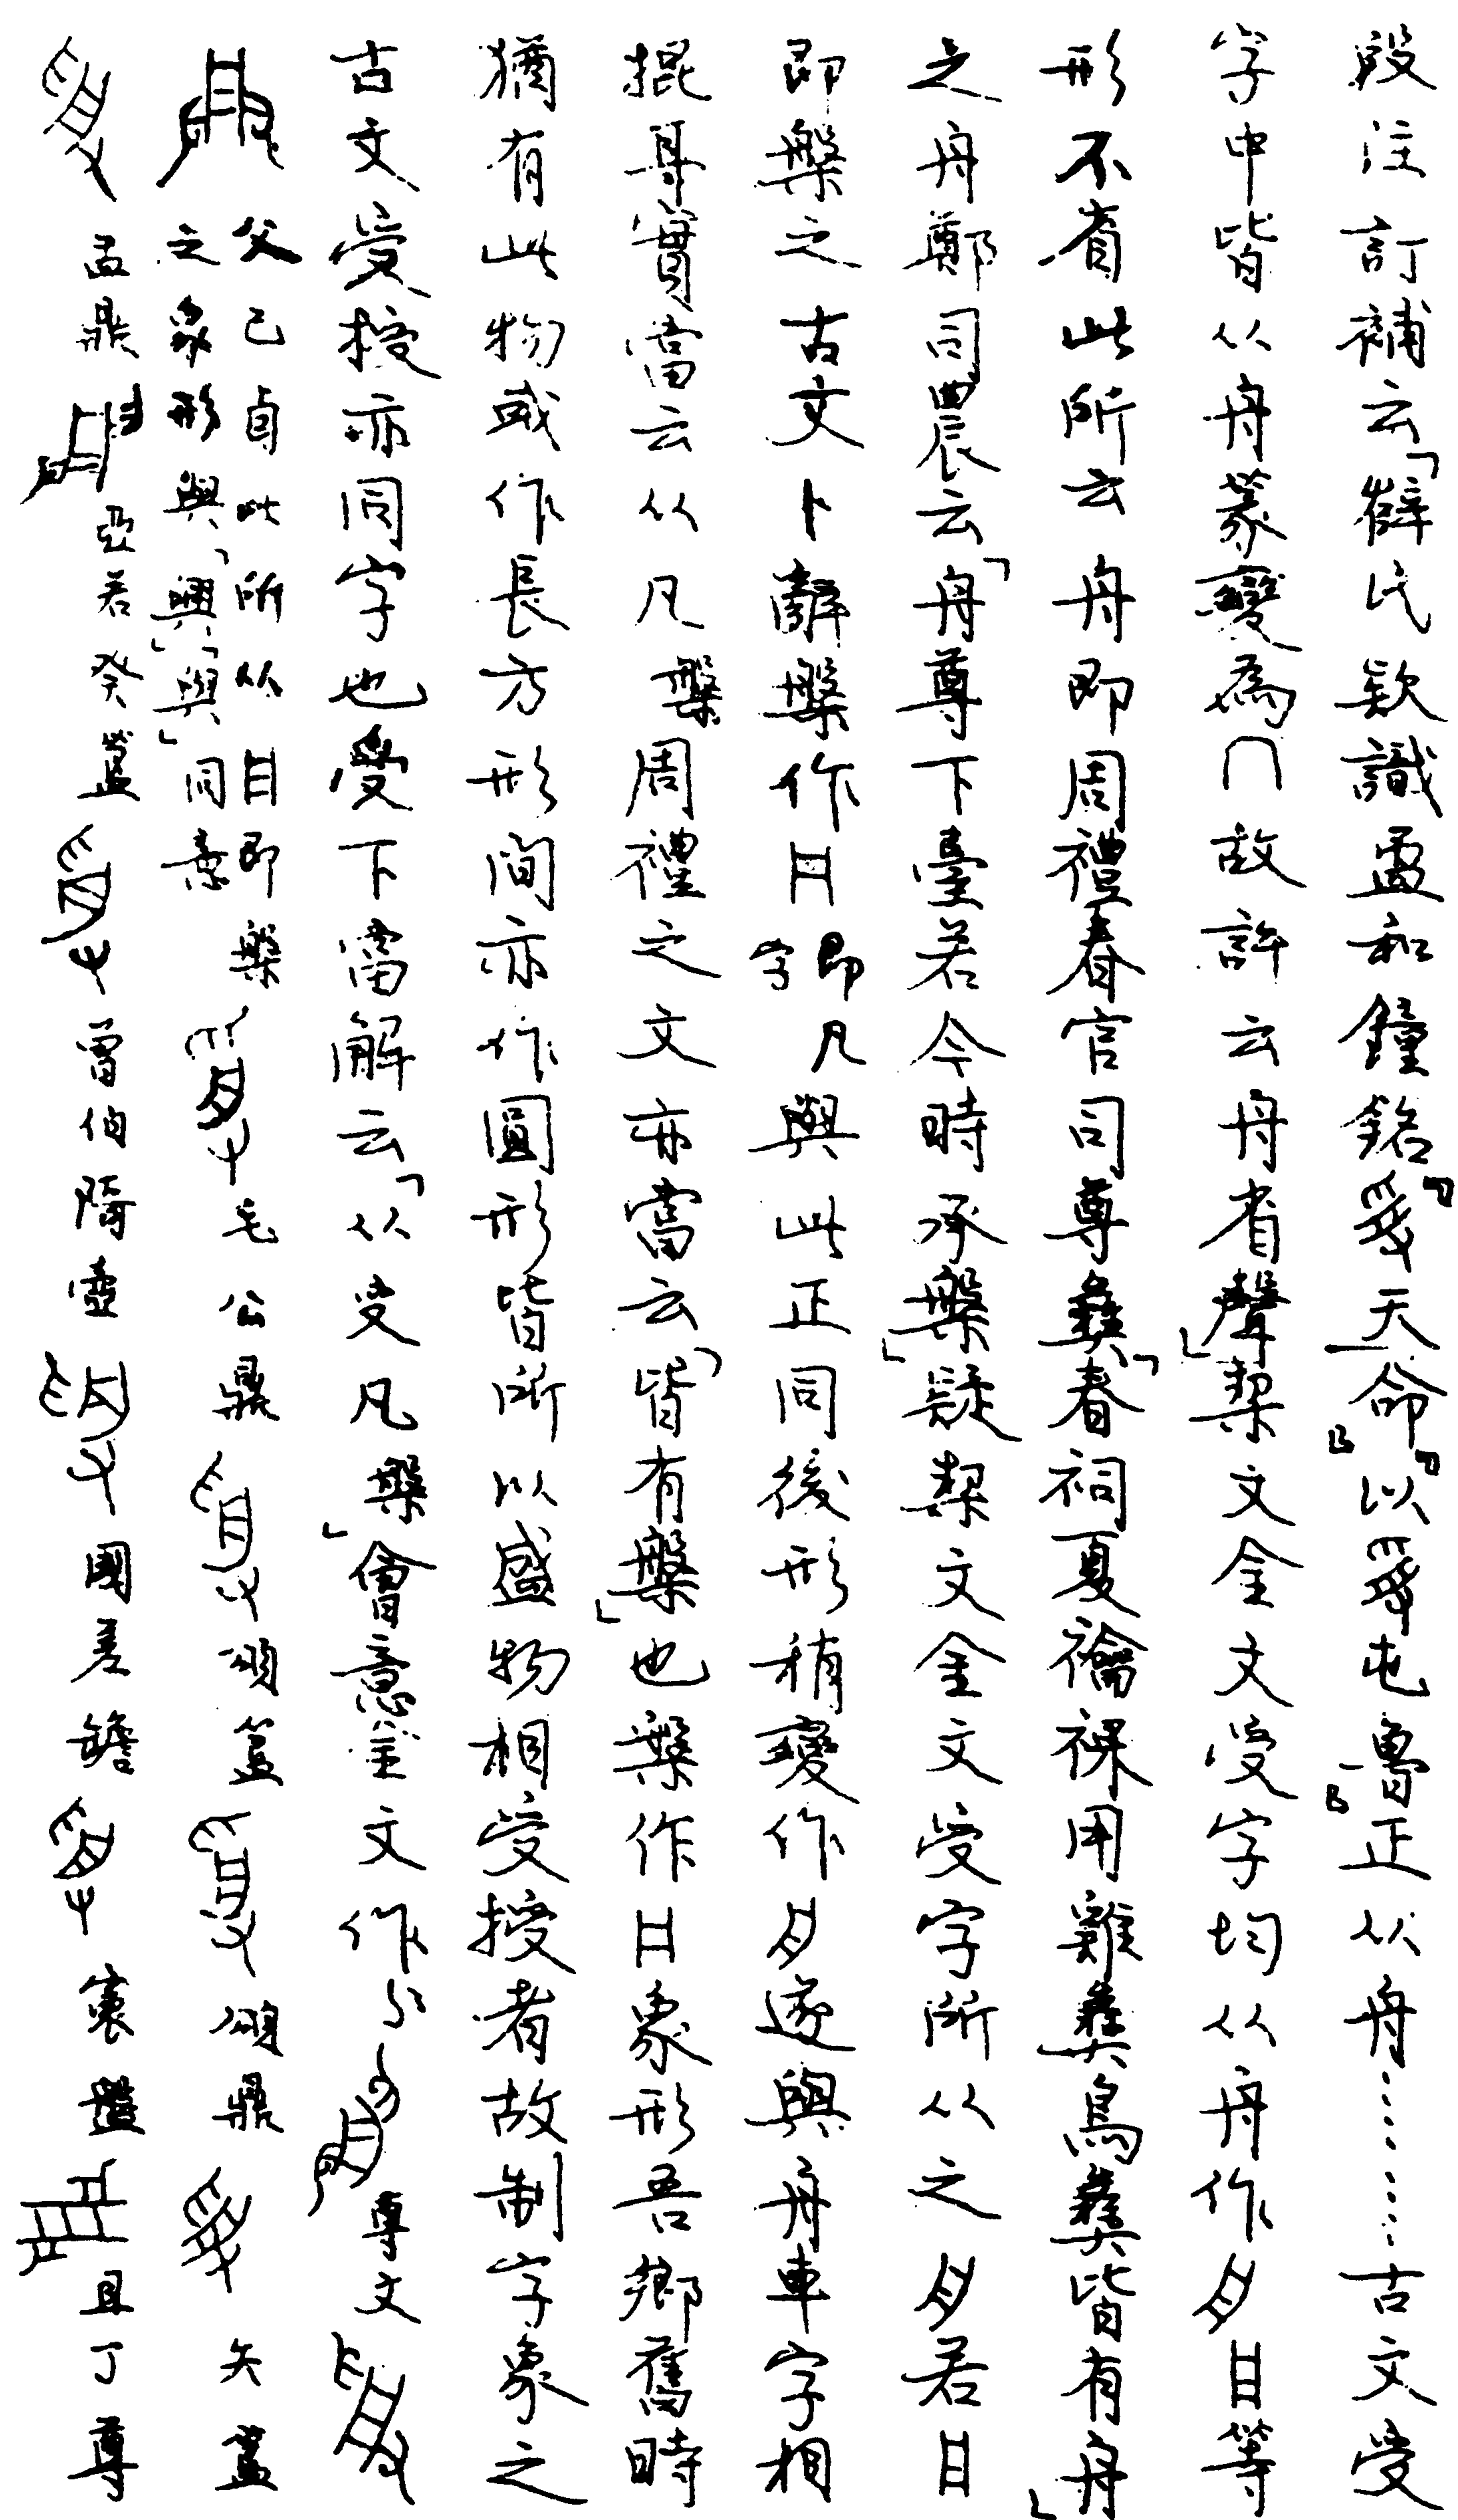 段注訂補云「薛氏欵識盄和鐘銘『受天命』『以受屯魯』正从舟……古文受
字中皆从舟篆變為冂故許云舟省聲」栔文金文受字均从舟作
形不省此所云舟即周禮春官司尊彝「春祠夏禴祼用雞彝鳥彝皆有舟」
之舟鄭司農云「舟尊下臺若今時承槃」疑栔文金文受字所从之若
即槃之古文卜辭槃作即凡字與此正同後形稍變作遂與舟車字相
掍耳實當云从凡槃周禮之文亦當云「皆有槃」也槃作象形吾鄉舊時
猶有此物或作長方形間亦作圓形皆所以盛物相受授者故制字象之
古文受授亦同字也受下當解云「从𠬪凡槃」會意金文作尊文
父己貞此所从即槃之象形與「興」「與」同意毛公鼎頌簋頌鼎矢簋
盂鼎亞若癸簋曾伯陭壺國差𦉜裏盤且丁尊